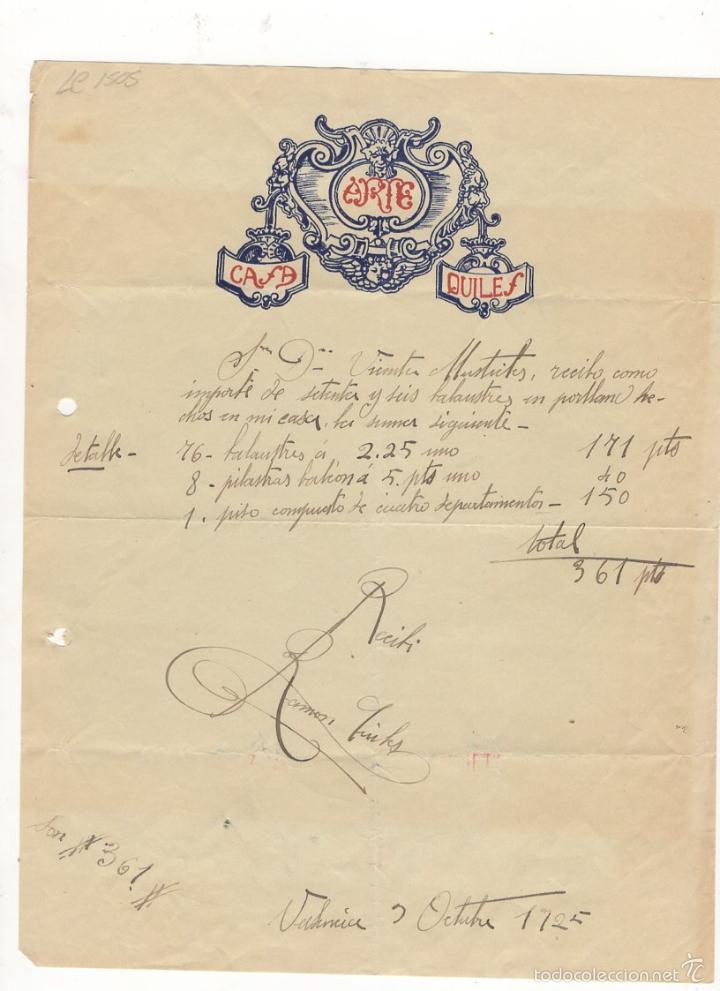 LC 1505
ARTE
CASA QUILES
Sr. Dn. Vicente recibo, como
importe de setenta y seis balaustres en portland he-
chos en mi casa, la suma siguiente -
Detalle - 76 - balaustres á 2.25 uno 171 pts
8 - pilastras balcón á 5. pts uno 40
1. piso compuesto de cuatro departamentos - 150
total
361 pts
Recibi
Ramon Quiles
Son # 361 #
Valencia 9 Octubre 1925
todocoleccion.net